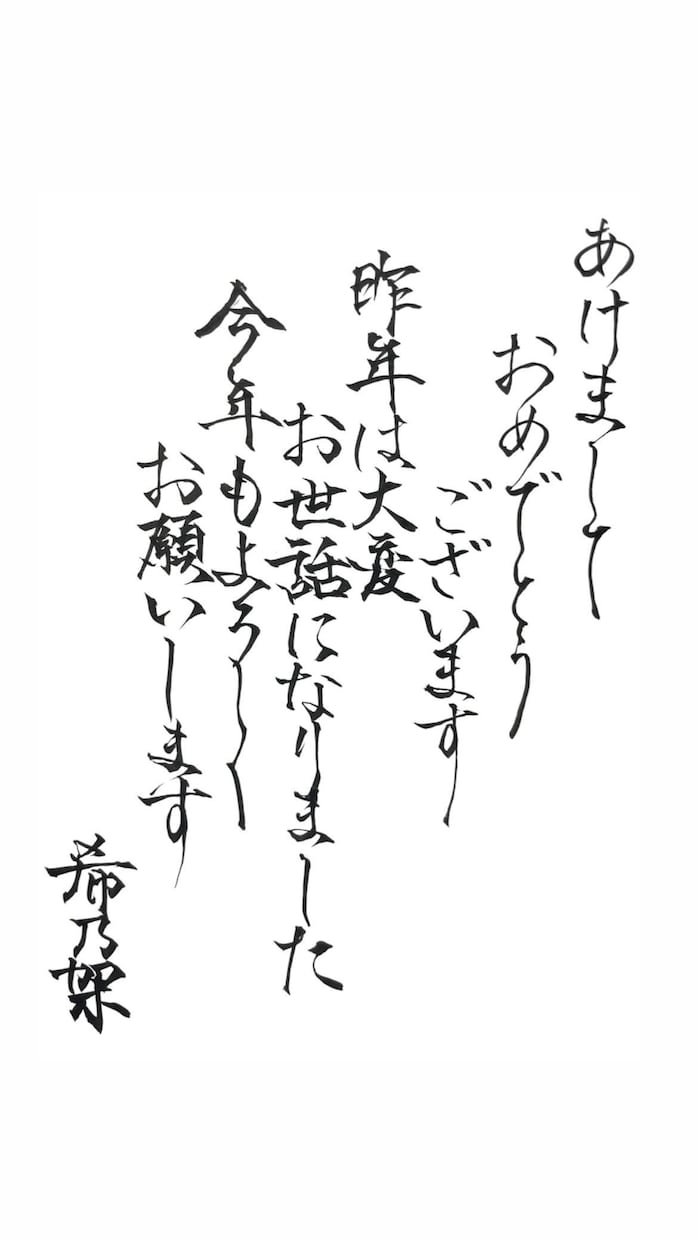 あけまして
おめでとう
ございます
昨年は大変
お世話になりました
今年もよろしく
お願いします
希乃架